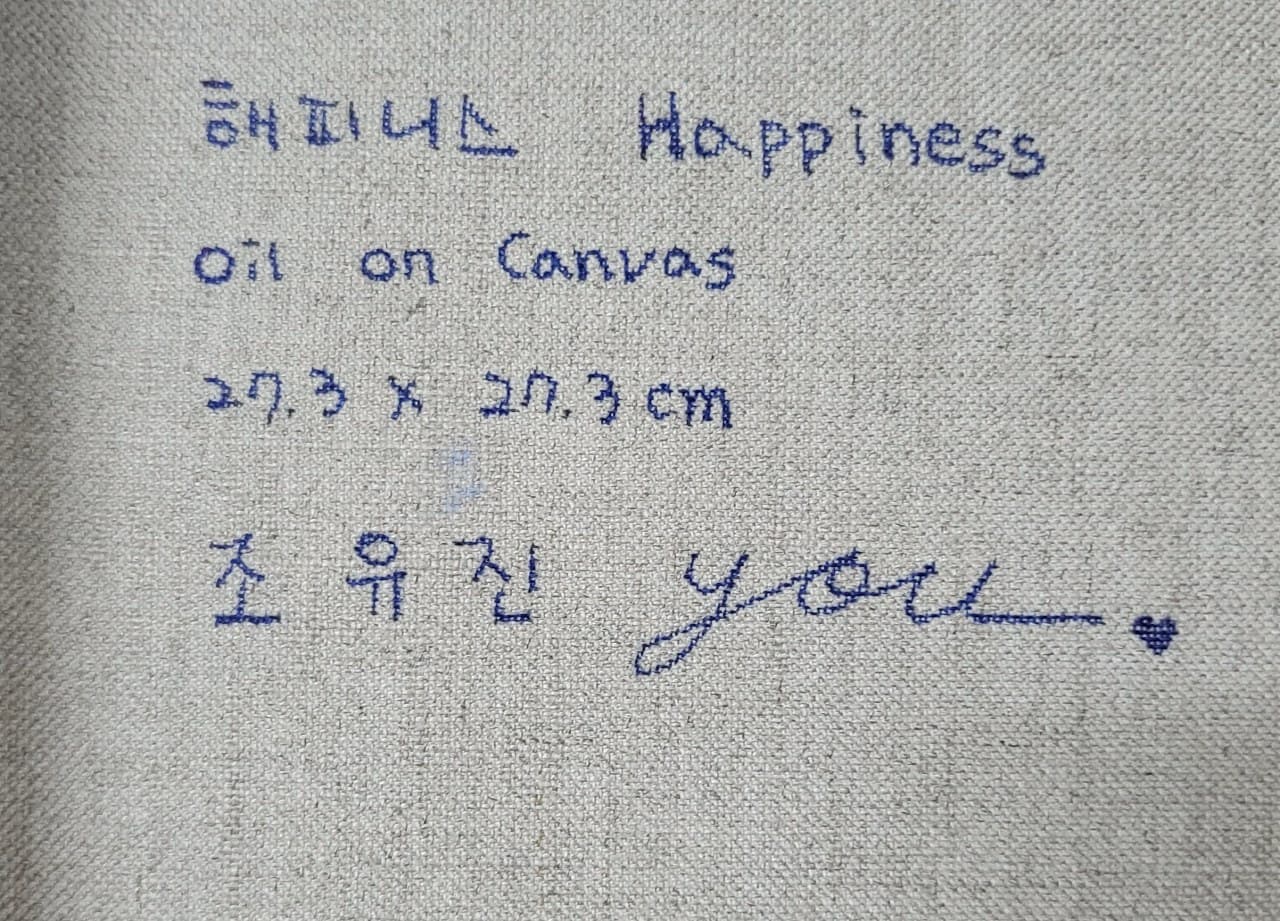 해피니스 Happiness
oil on Canvas
27.3 x 27.3 cm
조유진 you ♥